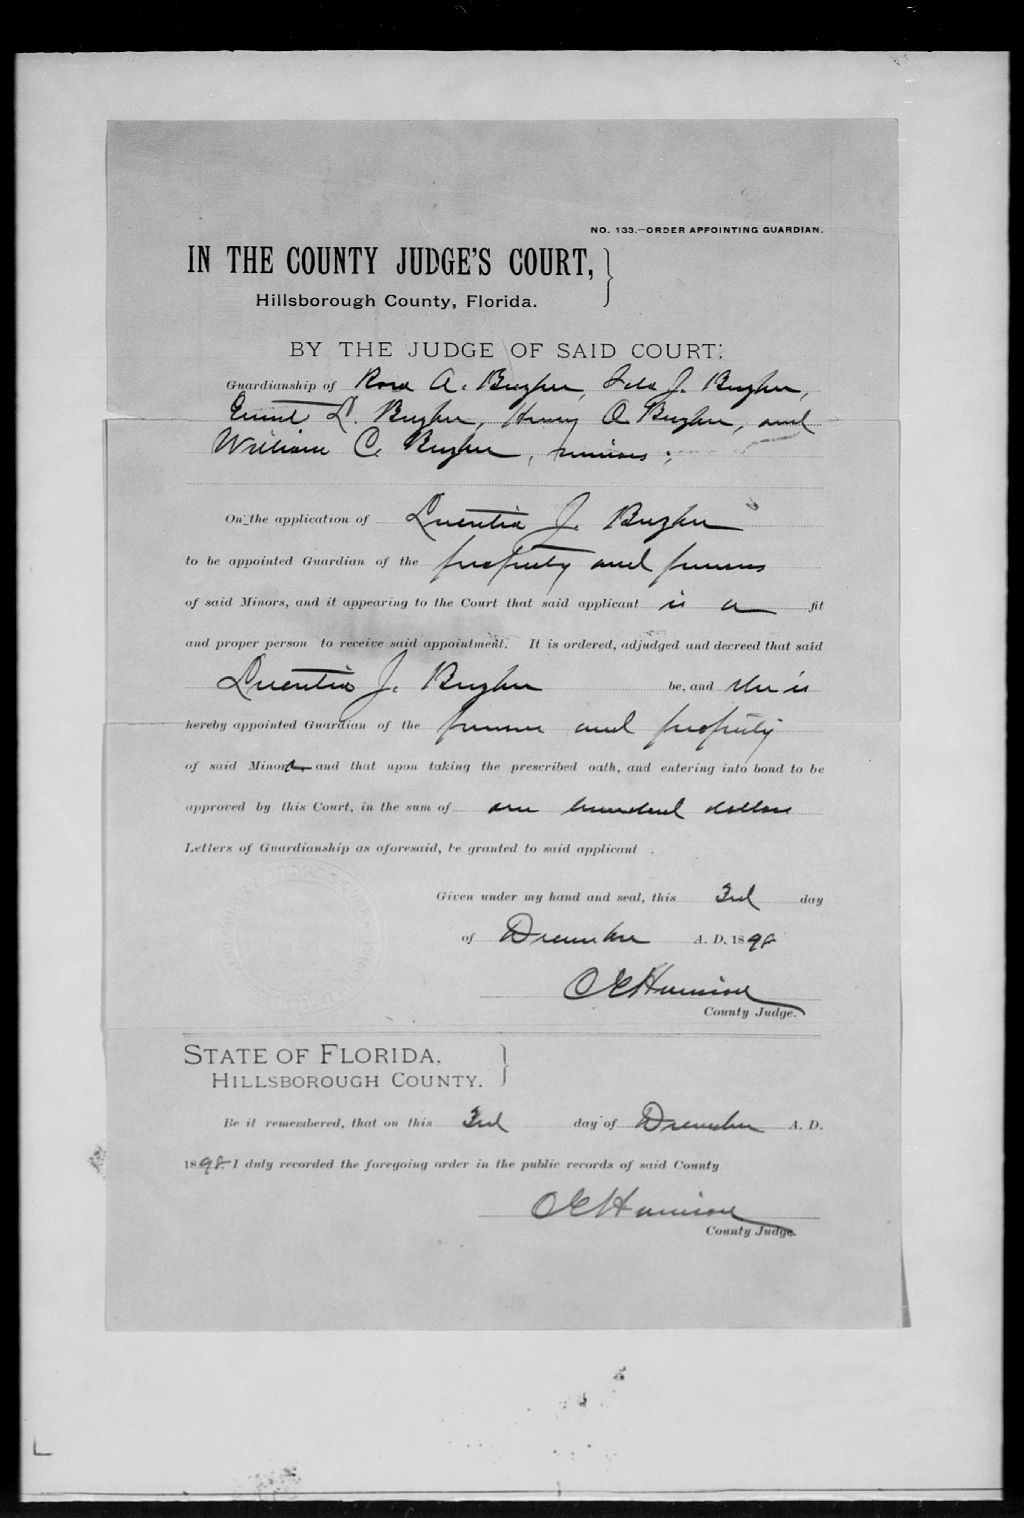 NO. 133.—ORDER APPOINTING GUARDIAN.
IN THE COUNTY JUDGE'S COURT,
Hillsborough County, Florida.
BY THE JUDGE OF SAID COURT:
Guardianship of Rosa A. J.
L. Henry O. and
William C. minors;
On the application of J.
to be appointed Guardian of the property and persons
of said Minors, and it appearing to the Court that said applicant is a fit
and proper person to receive said appointment. It is ordered, adjudged and decreed that said
J. be, and she is
hereby appointed Guardian of the persons and property
of said Minors and that upon taking the prescribed oath, and entering into bond to be
approved by this Court, in the sum of one hundred dollars
Letters of Guardianship as aforesaid, be granted to said applicant .
Given under my hand and seal, this 3rd day
of December A. D. 1898
County Judge.
STATE OF FLORIDA.
HILLSBOROUGH COUNTY.
Be it remembered, that on this 3rd day of December A. D.
1898 I duly recorded the foregoing order in the public records of said County
County Judge.